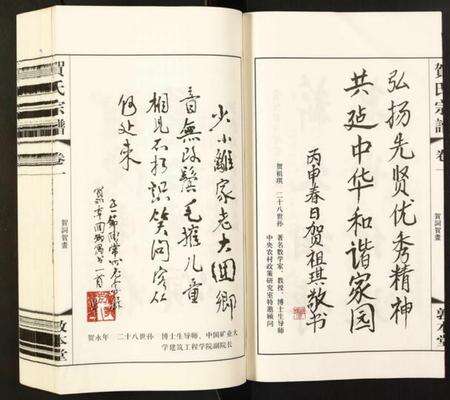 弘扬先贤优秀精神
共延中华和谐家园
丙申春日贺祖琪敬书
贺祖琪 二十八世孙 著名数学家、教授、博士生导师
中央农村政策研究室特邀顾问
贺氏宗譜
卷一
賀詞賀畫
敦本堂
少小離家老大回鄉
音無改鬓毛摧儿童
相見不相識笑问客从
何处来
贺永年 二十八世孙 博士生导师、中国矿业大
学建筑工程学院副院长
賀氏宗譜
卷一
賀詞賀畫
敦本堂